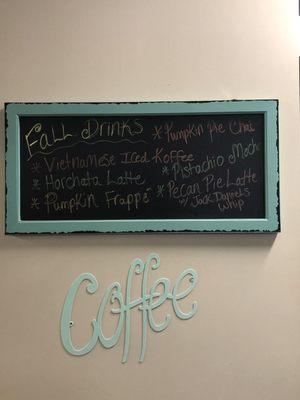 Fall Drinks
* Vietnamese Iced Koffee
* Horchata Latte
* Pumpkin Frappé
* Pumpkin Pie Chai
* Pistachio Moch
* Pecan Pie Latte
w/ Jack Daniels
Whip
Coffee